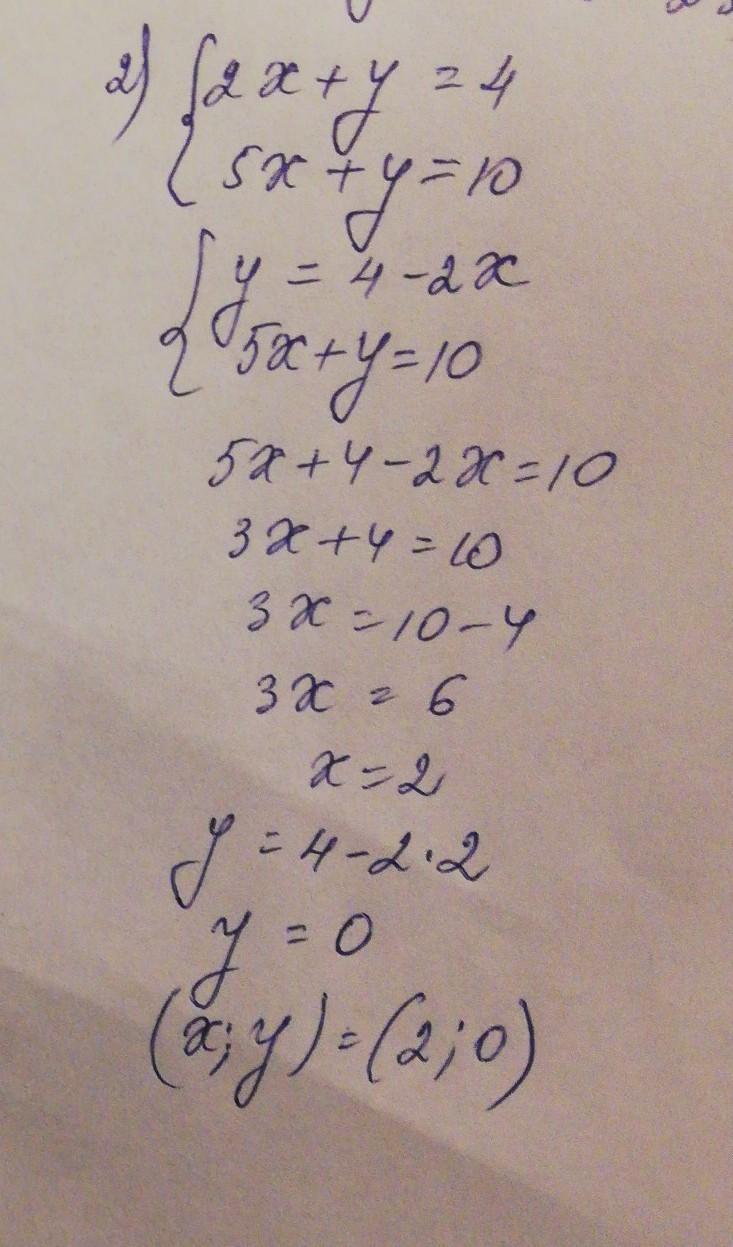 2) {2x + y = 4
5x + y = 10
{y = 4 - 2x
5x + y = 10
5x + 4 - 2x = 10
3x + 4 = 10
3x = 10 - 4
3x = 6
x = 2
y = 4 - 2 · 2
y = 0
(x; y) = (2; 0)